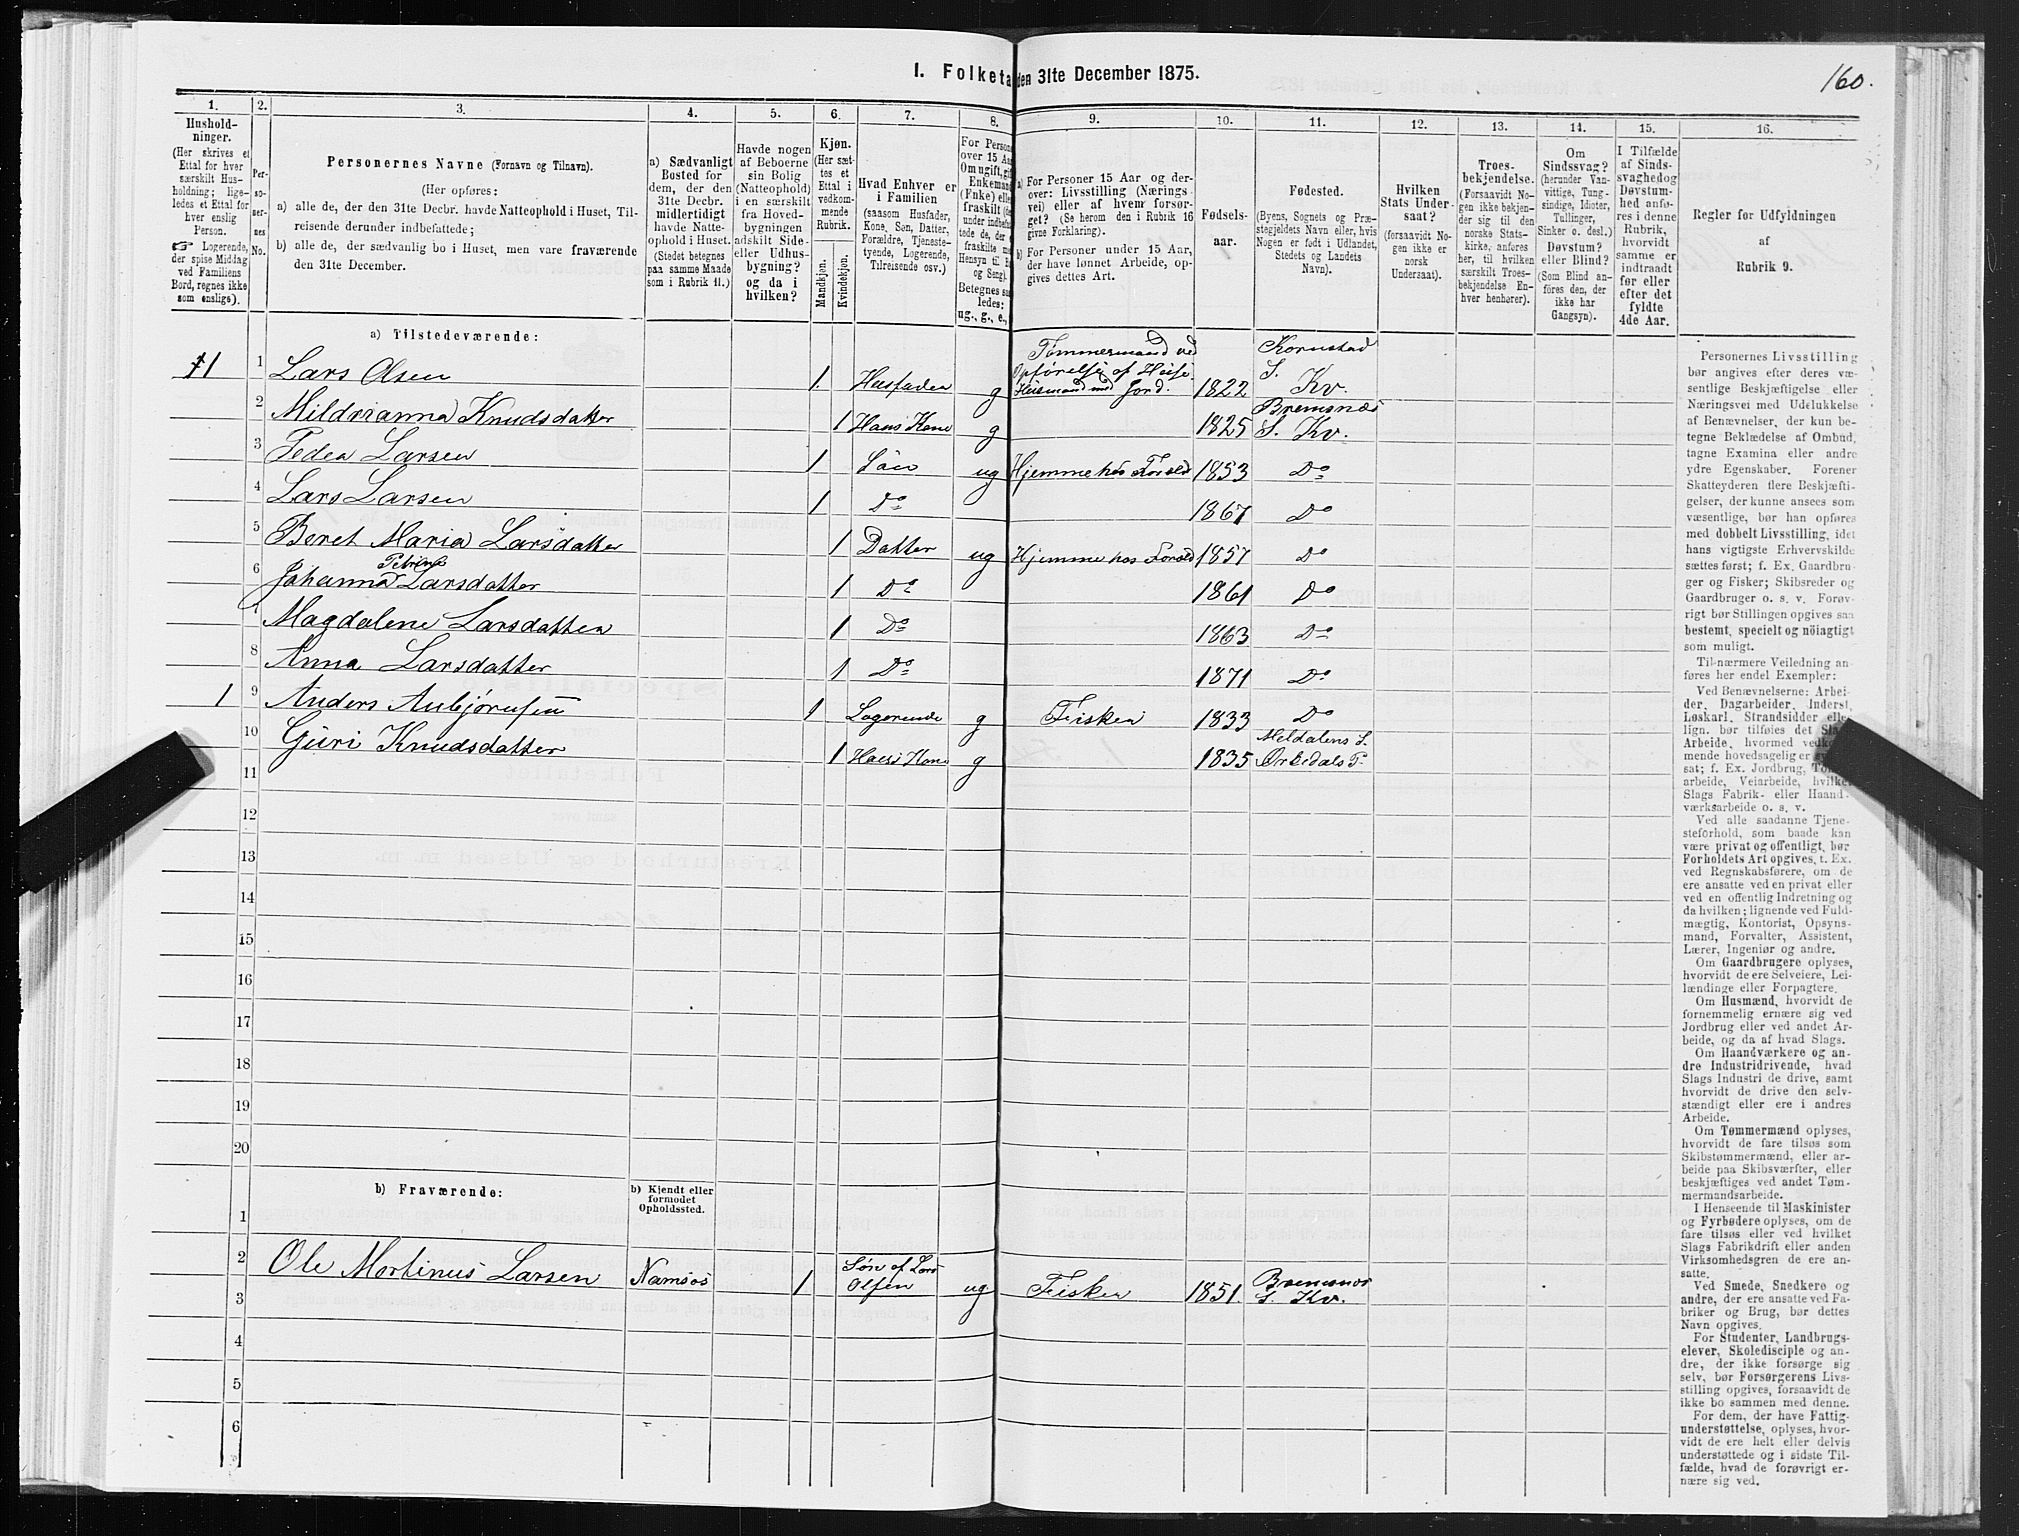 160.
I. Folketa den 31te December 1875.
1. 2. 3. 4. 5. 6. 7. 8. 9. 10. 11. 12. 13. 14. 15. 16.
Hushold-
ninger.
(Her skrives et
Ettal for hver
særskilt Hus-
holdning; lige-
ledes et Ettal for
hver enslig
Person.
☞ Logerende,
der spise Middag
ved Familiens
Bord, regnes ikke
som enslige).
Per-
so-
ner-
nes
No.
Personernes Navne (Fornavn og Tilnavn).
(Her opføres:
a) alle de, der den 31te Decbr. havde Natteophold i Huset, Til-
reisende derunder indbefattede;
b) alle de, der sædvanlig bo i Huset, men vare fraværende
den 31te December.
a) Sædvanligt
Bosted for
dem, der den
31te Decbr.
midlertidigt
havde Natte-
ophold i Huset.
(Stedet betegnes
paa samme Maade
som i Rubrik 11.)
Havde nogen
af Beboerne
sin Bolig
(Natteophold)
i en særskilt
fra Hoved-
bygningen
adskilt Side-
eller Udhus-
bygning?
og da i
hvilken?
Kjøn.
(Her sæt-
tes et
Ettal i
vedkom-
mende
Rubrik.
Mandkjøn.
Kvindekjøn.
Hvad Enhver er
i Familien
(saasom Husfader,
Kone, Søn, Datter,
Forældre, Tjeneste-
tyende, Logerende,
Tilreisende osv.)
For Person
over 15 Aa
Om ugift, gift
Enkemand
(Enke) elle
fraskilt
under indbefat-
tede de, der
fraskilte
Hensyn til
og Seng).
Betegnes saa-
ledes:
ug., g., e.,
a) For Personer 15 Aar og der-
over: Livsstilling (Nærings-
vei) eller af hvem forsør-
get? (Se herom den i Rubrik 16
givne Forklaring).
b) For Personer under 15 Aar,
der have lønnet Arbeide, op-
gives dettes Art.
Fødsels-
aar.
Fødested.
(Byens, Sognets og Præ-
stegjeldets Navn eller, hvis
Nogen er født i Udlandet,
Stedets og Landets
Navn).
Hvilken
Stats Under-
saat?
(forsaavidt No-
gen ikke er
norsk
Undersaat).
Troes-
bekjendelse.
(Forsaavidt No-
gen ikke bekjen-
der sig til den
norske Stats-
kirke, anføres
her, til hvilken
særskilt Troes-
bekjendelse En-
hver henhører).
Om
Sindssvag?
(herunder Van-
vittige, Tung-
sindige, Idioter,
Tullinger,
Sinker o. desl.)
Døvstum?
eller Blind?
(Som Blind an-
føres den, der
ikke har
Gangsyn).
I Tilfælde
af Sinds-
svaghedog
Døvstum-
hed anfø-
res i denne
Rubrik,
hvorvidt
samme er
indtraadt
før eller
efter det
fyldte
4de Aar.
Regler for Udfyldningen
af
Rubrik 9.
a) Tilstedeværende:
1 1 Lars Olsen 1. Husfader g Tømmermand ved Opførelse af Huse. Huusmand med Jord. 1822 Kornstad S. Kv.
2 Mildrianna Knudsdatter 1 Hans Kone g 1825 Bremsnæs S. Kv.
3 Peder Larsen 1 Søn ug Hjemme hos Foræld 1853 Do
4 Lars Larsen 1 Do 1867 Do
5 Beret Maria Larsdatter 1 Datter ug Hjemme hos Foræld 1857 Do
6 Johanna Petrina Larsdatter 1 Do 1861 Do
7 Magdalene Larsdatter 1 Do 1863 Do
8 Anna Larsdatter 1 Do 1871 Do
1 9 Anders Anbjørnsen 1 Logerende g Fisker 1833 Do
10 Guri Knudsdatter 1 Hans Kone g 1835 Meldalens S. Orkedals P.
11
12
13
14
15
16
17
18
19
20
b) Fraværende:
b) Kjendt eller
formodet
Opholdssted.
1
2 Ole Martinus Larsen Namsos 1 Søn af Lars Olsen ug Fisker 1851. Bremsnes S. Kv.
3
4
5
6
Personernes Livsstilling
bør angives efter deres væ-
sentlige Beskjæftigelse eller
Næringsvei med Udelukkelse
af Benævnelser, der kun be-
tegne Beklædelse af Ombud,
tagne Examina eller andre
ydre Egenskaber. Forener
Skatteyderen flere Beskjæfti-
gelser, der kunne ansees som
væsentlige, bør han opføres
med dobbelt Livsstilling, idet
hans vigtigste Erhvervskilde
sættes først; f. Ex. Gaardbru-
ger og Fisker; Skibsreder og
Gaardbruger o. s. v. Forøv-
rigt bør Stillingen opgives saa
bestemt, specielt og nöiagtigt
som muligt.
Til nærmere Veiledning an-
føres her endel Exempler:
Ved Benævnelserne: Arbei-
der, Dagarbeider, Inderst,
Løskarl, Strandsidder eller
lign. bør tilføies det Slags
Arbeide, hvormed vedkom-
mende hovedsagelig er syssel-
sat; f. Ex. Jordbrug, Tomte-
arbeide, Veiarbeide, hvilket
Slags Fabrik- eller Haand-
værksarbeide o. s. v.
Ved alle saadanne Tjene-
steforhold, som baade kan
være privat og offentligt, bør
Forholdets Art opgives, t. Ex.
ved Regnskabsførere, om de
ere ansatte ved en privat eller
ved en offentlig Indretning og
da hvilken; lignende ved Fuld-
mægtig, Kontorist, Opsyns-
mand, Forvalter, Assistent,
Lærer, Ingeniør og andre.
Om Gaardbrugere oplyses,
hvorvidt de ere Selveiere, Lei-
lændinge eller Forpagtere.
Om Husmænd, hvorvidt de
fornemmelig ernære sig ved
Jordbrug eller ved andet Ar-
beide, og da af hvad Slags.
Om Haandværkere og an-
dre Industridrivende, hvad
Slags Industri de drive, samt
hvorvidt de drive den selv-
stændigt eller ere i andres
Arbeide.
Om Tømmermænd oplyses,
hvorvidt de fare tilsøs som
Skibstømmermænd, eller ar-
beide paa Skibsværfter, eller
beskjæftiges ved andet Tøm-
mermandsarbeide.
I Henseende til Maskinister
og Fyrbødere oplyses, om de
fare tilsøs eller ved hvilket
Slags Fabrikdrift eller anden
Virksomhedsgren de ere an-
satte.
Ved Smede, Snedkere og
andre, der ere ansatte ved Fa-
briker og Brug, bør dettes
Navn opgives.
For Studenter, Landbrugs-
elever, Skoledisciple og an-
dre, der ikke forsørge sig
selv, bør Forsørgerens Livs-
stilling opgives, forsaavidt de
ikke bo sammen med denne.
For dem, der have Fattig-
understøttelse, oplyses, hvor-
vidt de ere helt eller delvis
understøttede og i sidste Til-
fælde, hvad de forøvrigt er-
nære sig ved.